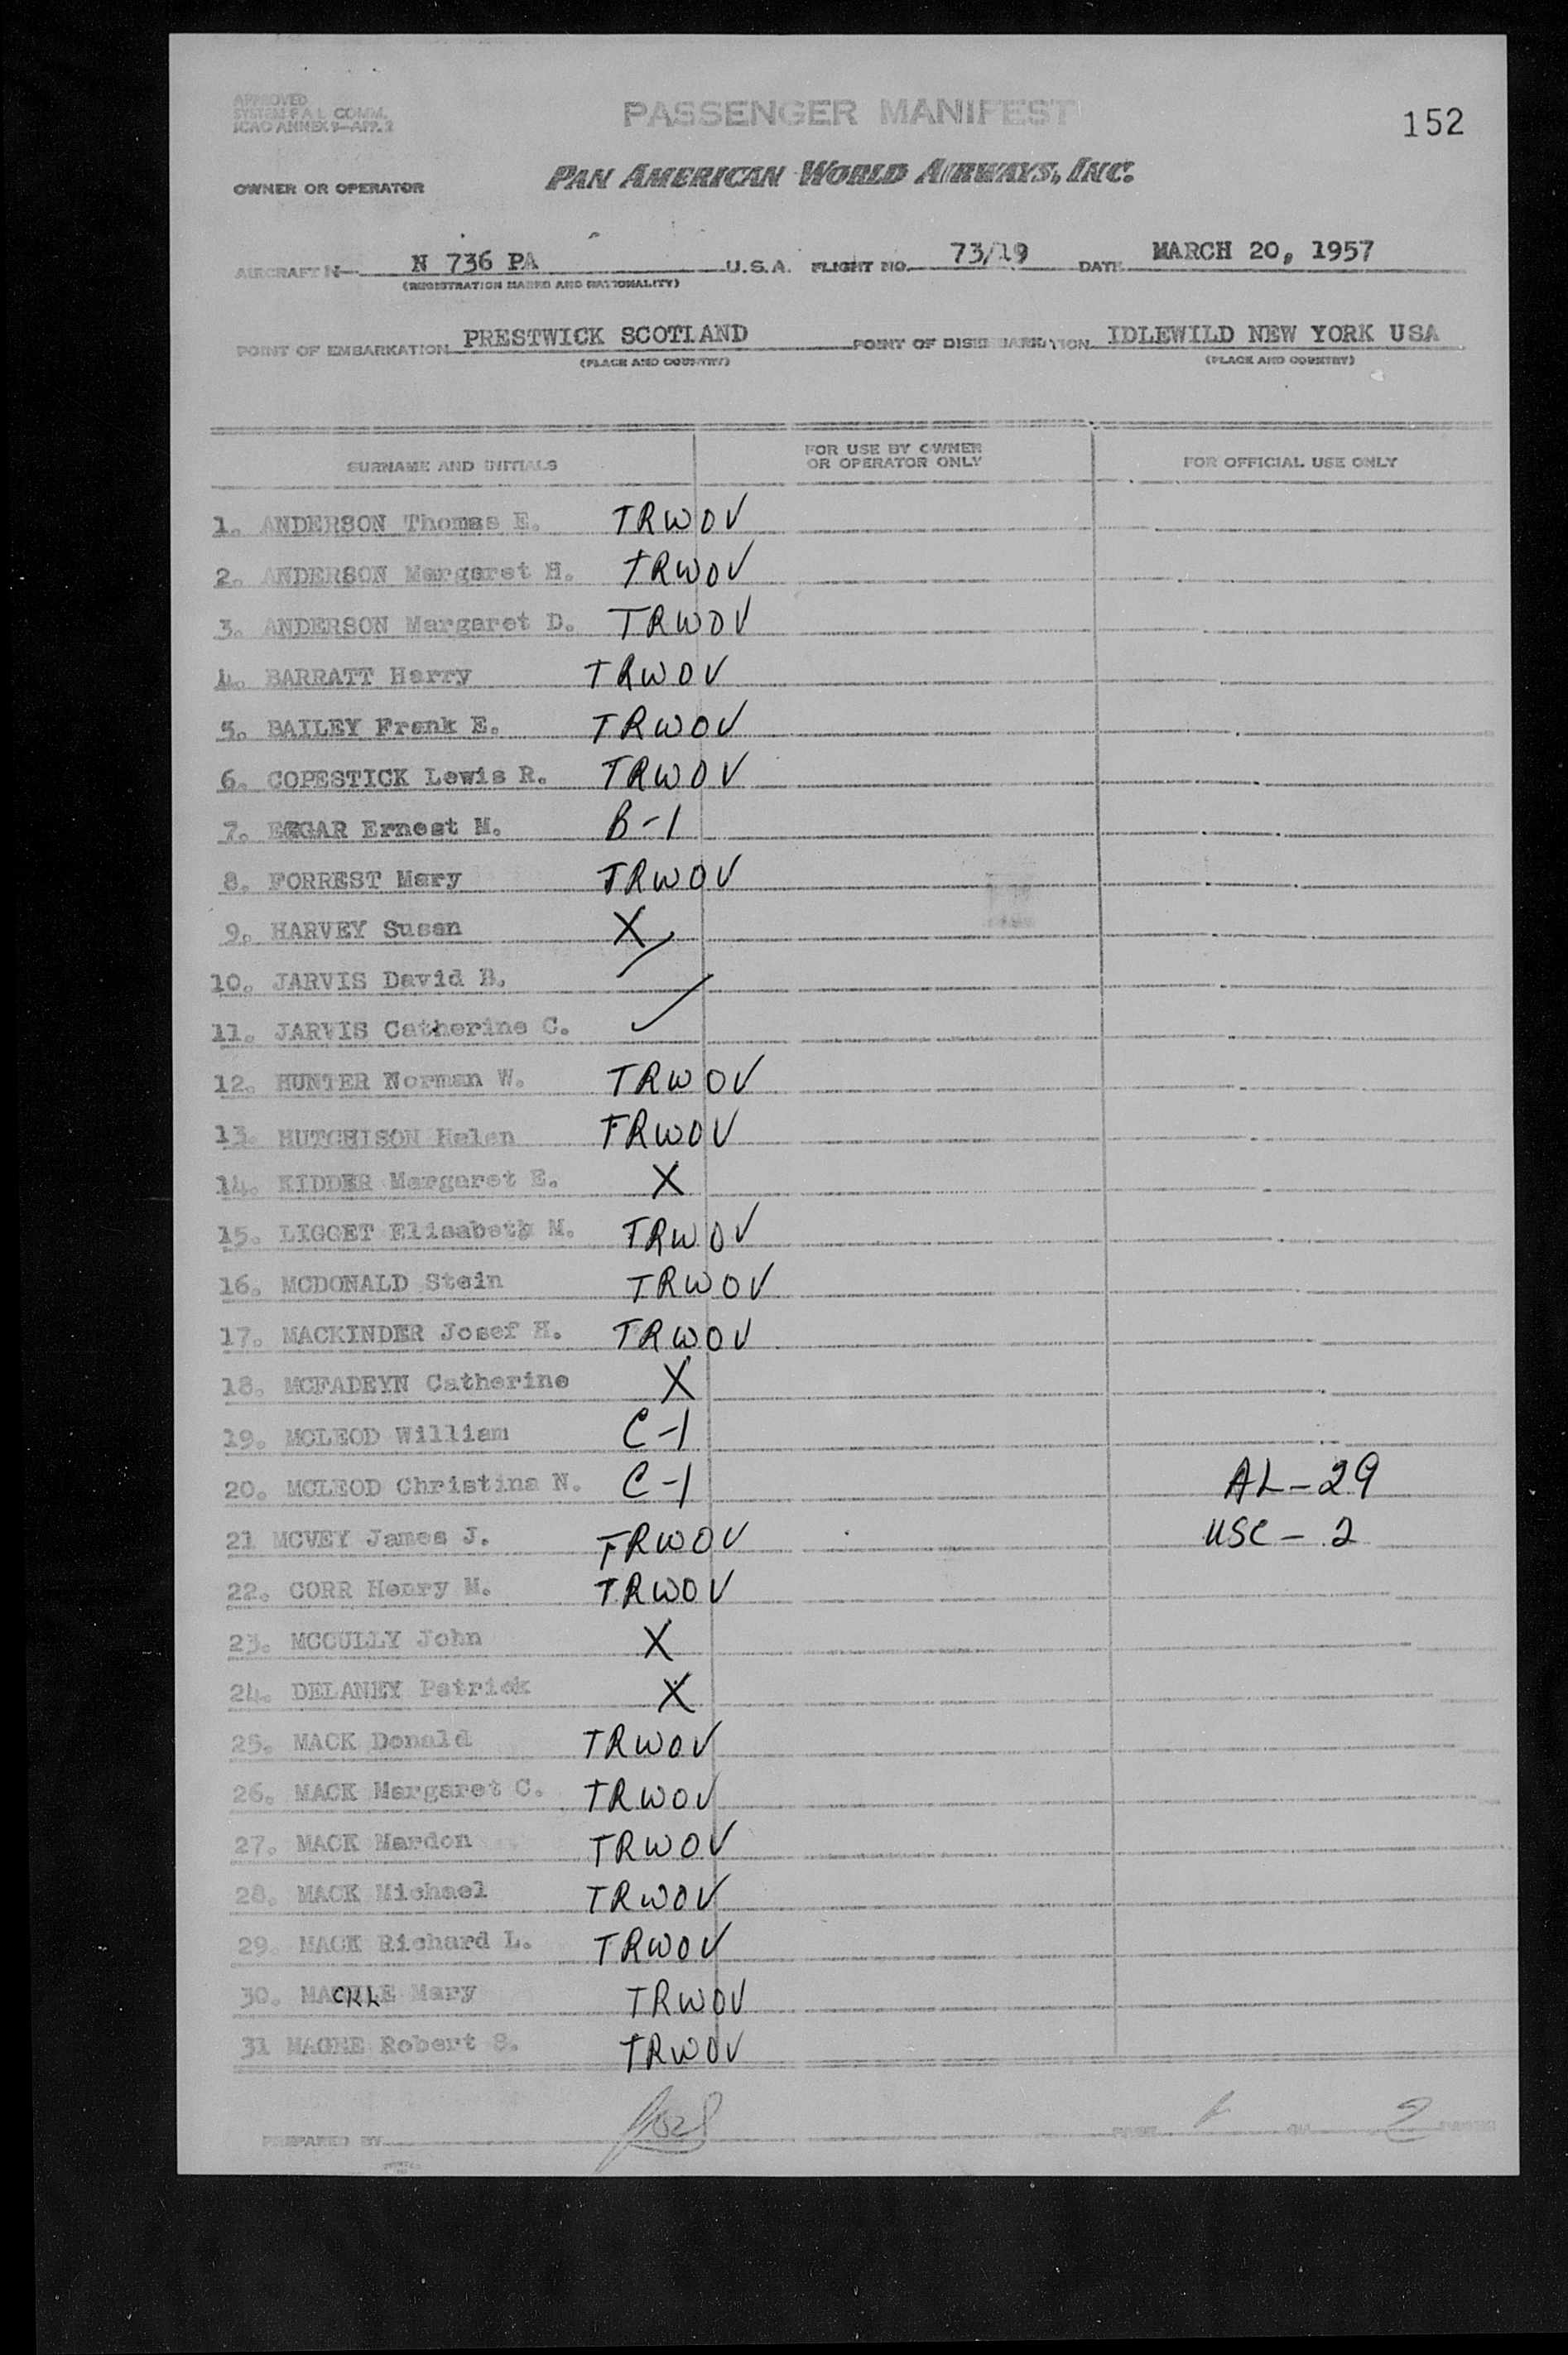 APPROVED
SYSTEM F A L COMM.
ICAO ANNEX 9—APP. 2
PASSENGER MANIFEST
152
OWNER OR OPERATOR
PAN AMERICAN WORLD AIRWAYS, INC.
AIRCRAFT N N 736 PA U.S.A. FLIGHT NO. 73/19 DATE MARCH 20, 1957
(REGISTRATION MARKS AND NATIONALITY)
POINT OF EMBARKATION PRESTWICK SCOTLAND POINT OF DISEMBARKATION IDLEWILD NEW YORK USA
(PLACE AND COUNTRY) (PLACE AND COUNTRY)
SURNAME AND INITIALS FOR USE BY OWNER OR OPERATOR ONLY FOR OFFICIAL USE ONLY
1. ANDERSON Thomas E. TRWOV
2. ANDERSON Margaret H. TRWOV
3. ANDERSON Margaret D. TRWOV
4. BARRATT Harry TRWOV
5. BAILEY Frank E. TRWOV
6. COPESTICK Lewis R. TRWOV
7. EGGAR Ernest M. B-1
8. FORREST Mary TRWOV
9. HARVEY Susan X
10. JARVIS David B. ✓
11. JARVIS Catherine C. ✓
12. HUNTER Norman W. TRWOV
13. HUTCHISON Helen TRWOV
14. KIDDER Margaret E. X
15. LIGGET Elisabeth M. TRWOV
16. MCDONALD Stein TRWOV
17. MACKINDER Josef H. TRWOV
18. MCFADEYN Catherine X
19. MCLEOD William C-1
20. MCLEOD Christina N. C-1 AL-29
21 MCVEY James J. TRWOV USC-2
22. CORR Henry M. TRWOV
23. MCCULLY John X
24. DELANEY Patrick X
25. MACK Donald TRWOV
26. MACK Margaret C. TRWOV
27. MACK Mardon TRWOV
28. MACK Michael TRWOV
29. MACK Richard L. TRWOV
30. MACKLE Mary TRWOV
31 Robert S. TRWOV
PREPARED BY PAGE 1 OF 2 PAGES